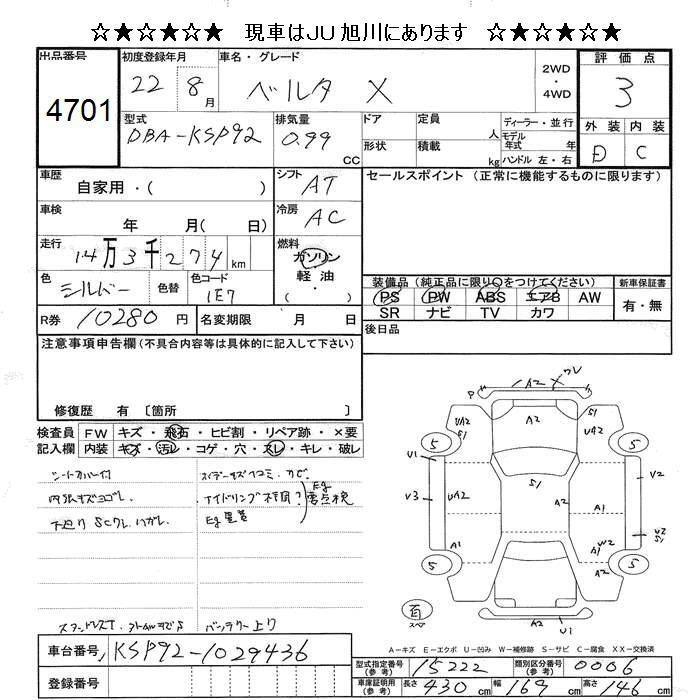 ☆★☆★☆ 現車はJU旭川にあります ☆★☆★☆
出品番号 4701
初度登録年月 22 8月
車名・グレード ベルタ X
2WD・4WD
評価点 3
型式 DBA-KSP92
排気量 0.99 CC
ドア 形状
定員 人 積載 kg
ディーラー・並行
モデル年式 年
ハンドル 左・右
外装 D 内装 C
車歴 自家用・( )
シフト AT
セールスポイント (正常に機能するものに限ります)
車検 年 月( 日)
冷房 AC
走行 14万3千274 km
燃料 ガソリン 軽油 ・( )
色 シルバー 色替 色コード 1E7
装備品(純正品に限り○をつけてください)
新車保証書 有・無
PS PW ABS エアB AW
SR ナビ TV カワ
R券 10280円 名変期限 月 日
後日品
注意事項申告欄(不具合内容等は具体的に記入して下さい)
修復歴 有 〔箇所 〕
検査員記入欄
FW キズ・飛石・ヒビ割・リペア跡・×要
内装 キズ・汚レ・コゲ・穴・スレ・キレ・破レ
シートカバー付
内張キズヨゴレ
下廻り SCクレ.ハガレ.
アイドリング不調?
Eg要点検
バッテリー上り
P A2 X クレ
UA2 S1 A2 S1 UA2
5 5
U1 V3 UA2 S1 A2 V2
A1 A1 W2 U2 S1
5 A2 5
スペア A2 U1
A-キズ E-エクボ U-凹み W-補修跡 S-サビ C-腐食 XX-交換済
車台番号 KSP92-1029436
登録番号
型式指定番号(参考) 15222 類別区分番号(参考) 0006
車庫証明用(参考) 長さ 430 cm 幅 169 cm 高さ 146 cm